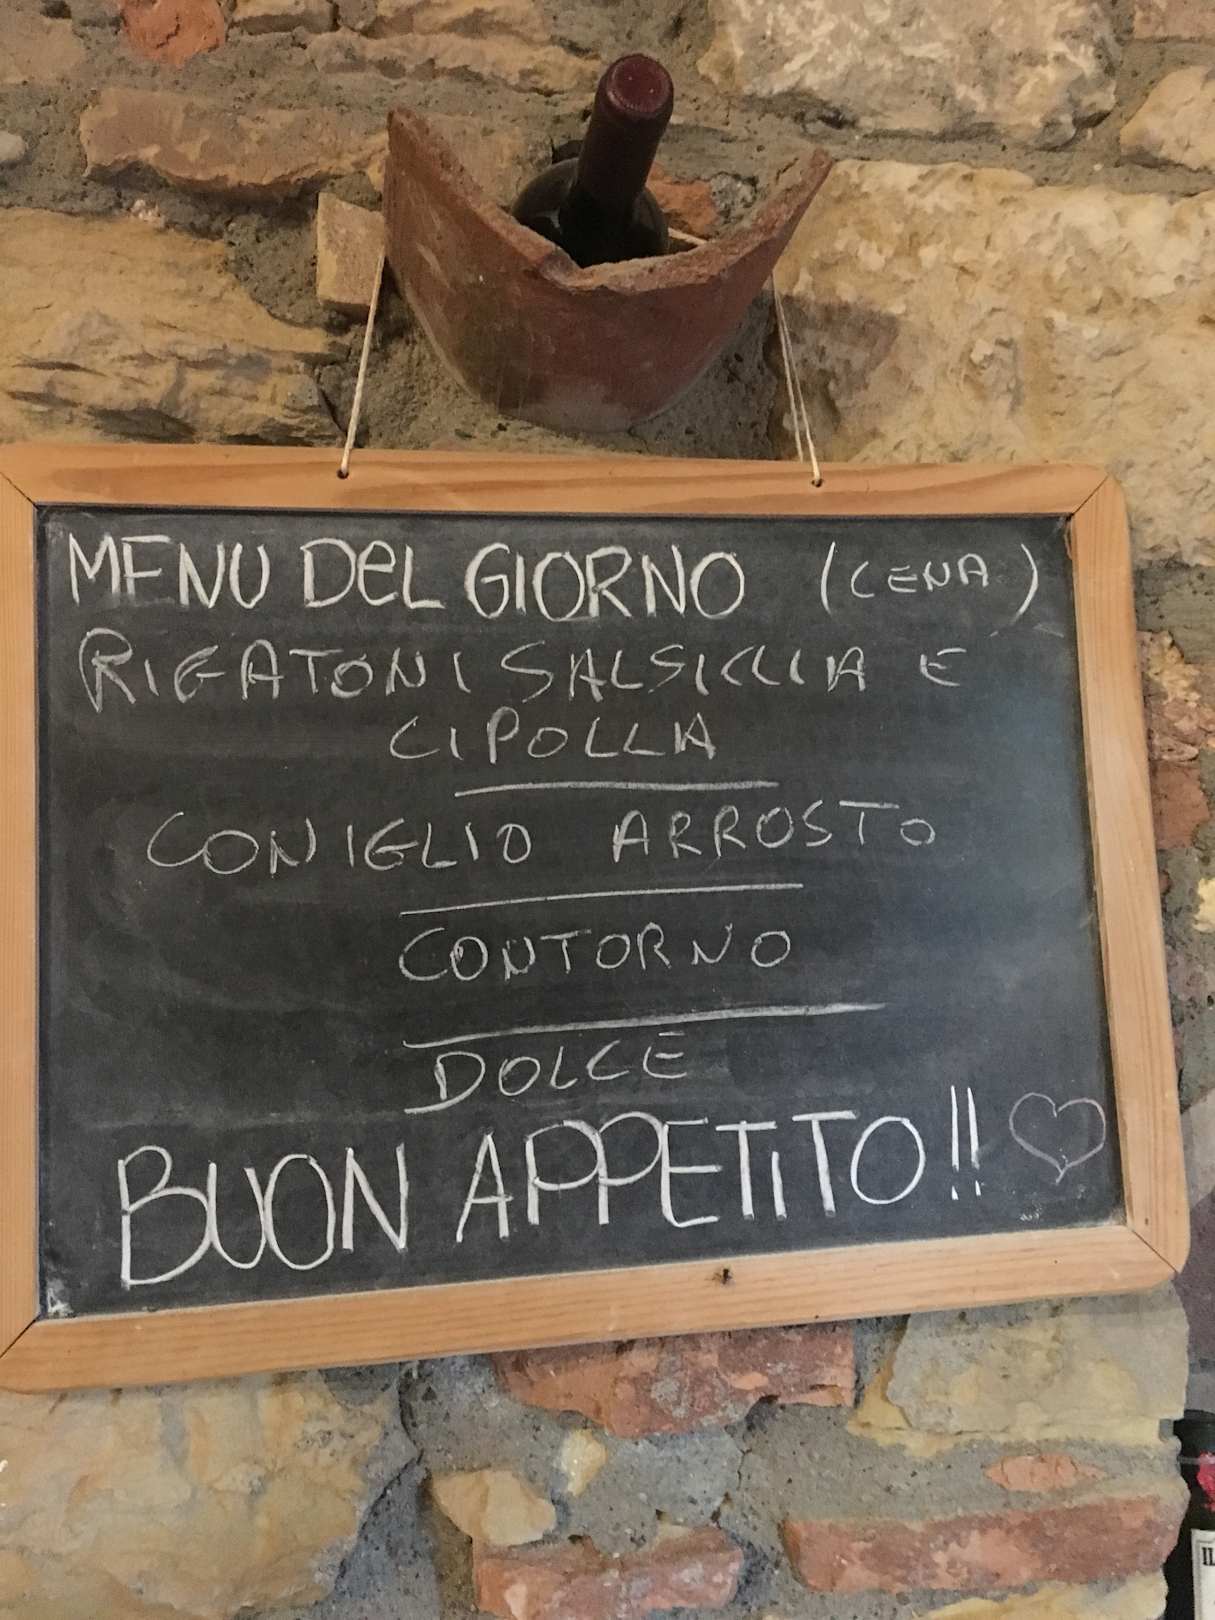 MENU DeL GIORNO (CENA)
RIGATONI SALSICCIA E
CIPOLLA
CONIGLIO ARROSTO
CONTORNO
DOLCE
BUON APPETiTO!!
IL